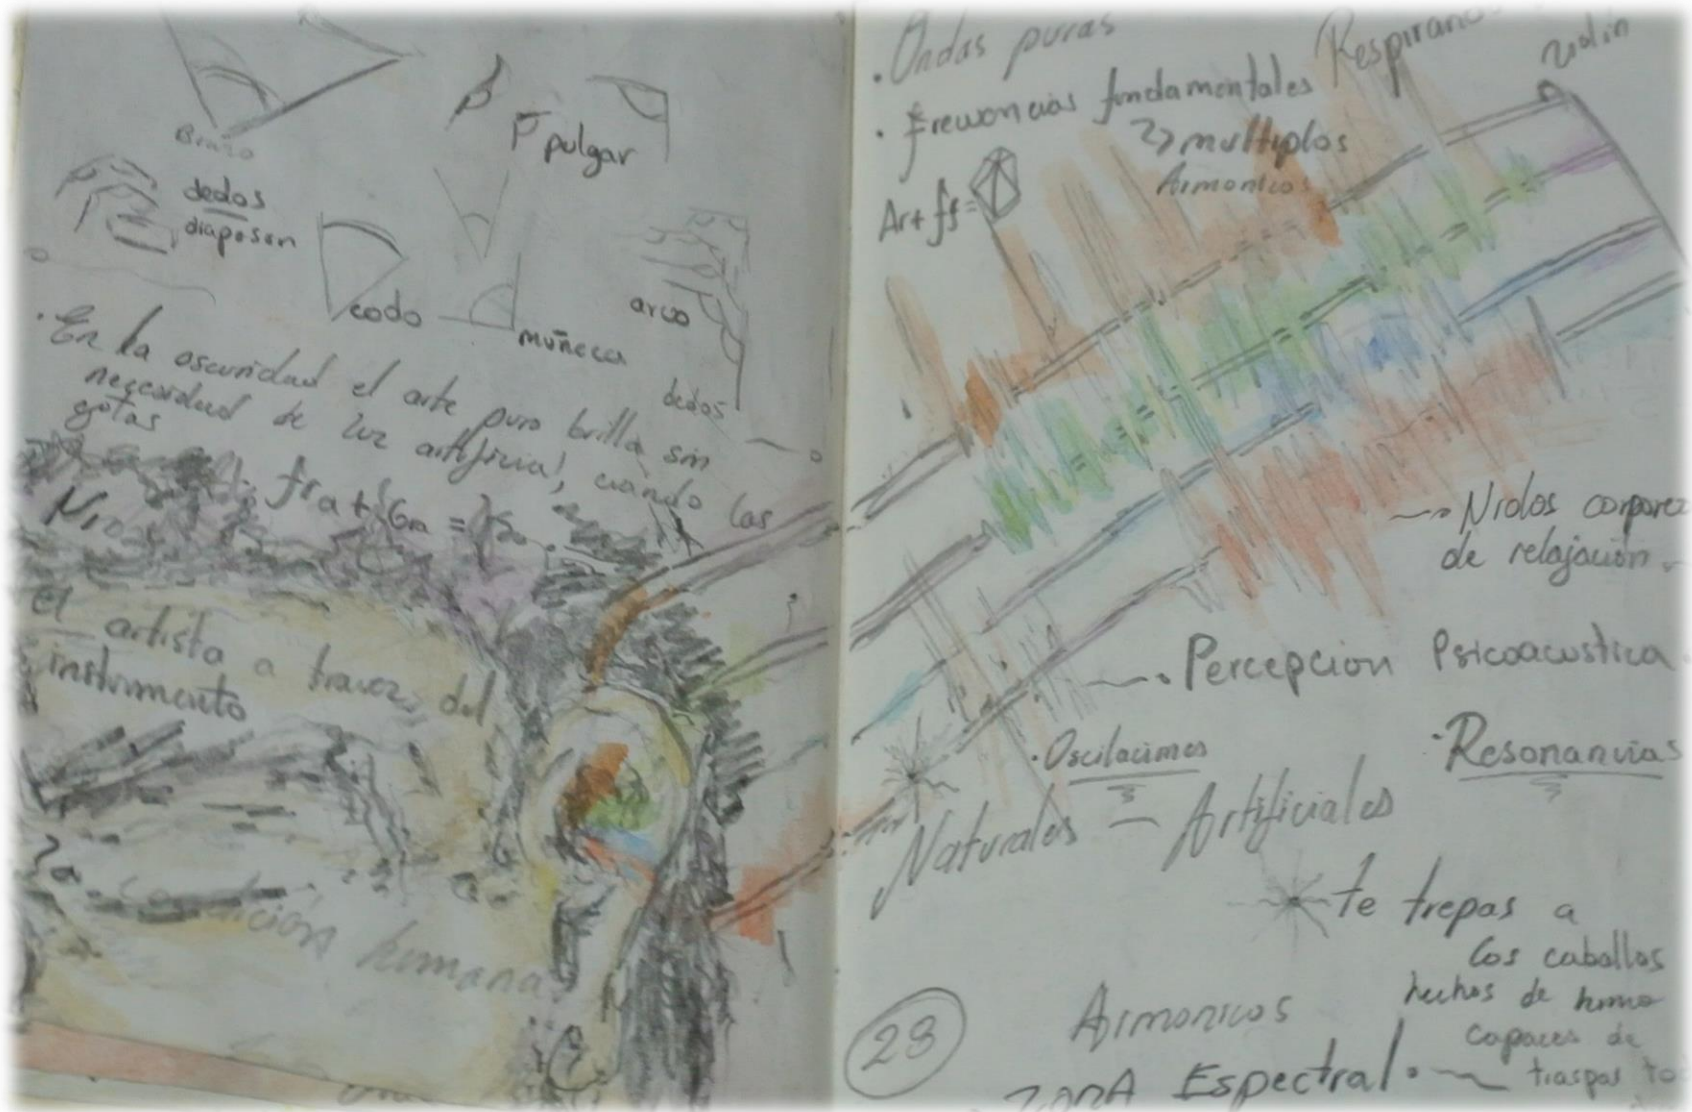 Brazo
pulgar
dedos
diapason
codo
muñeca
arco
dedos
· En la oscuridad el arte puro brilla sin
necesidad de luz artificial, cuando las
gotas
fra + 6m =
Nidos
el artista a travez del
instrumento
la condición humana
· Ondas puras
Respirando
violin
· frewencias fundamentales
multiplos
Armonicos
Ar + ff =
Nidos corporeo
de relajación.
· Percepcion Psicoacustica.
· Oscilaciones
· Resonancias
Naturales – Artificiales
te trepas a
los caballos
hechos de humo
capaces de
traspas
Armonicos
28
ZonA Espectral.